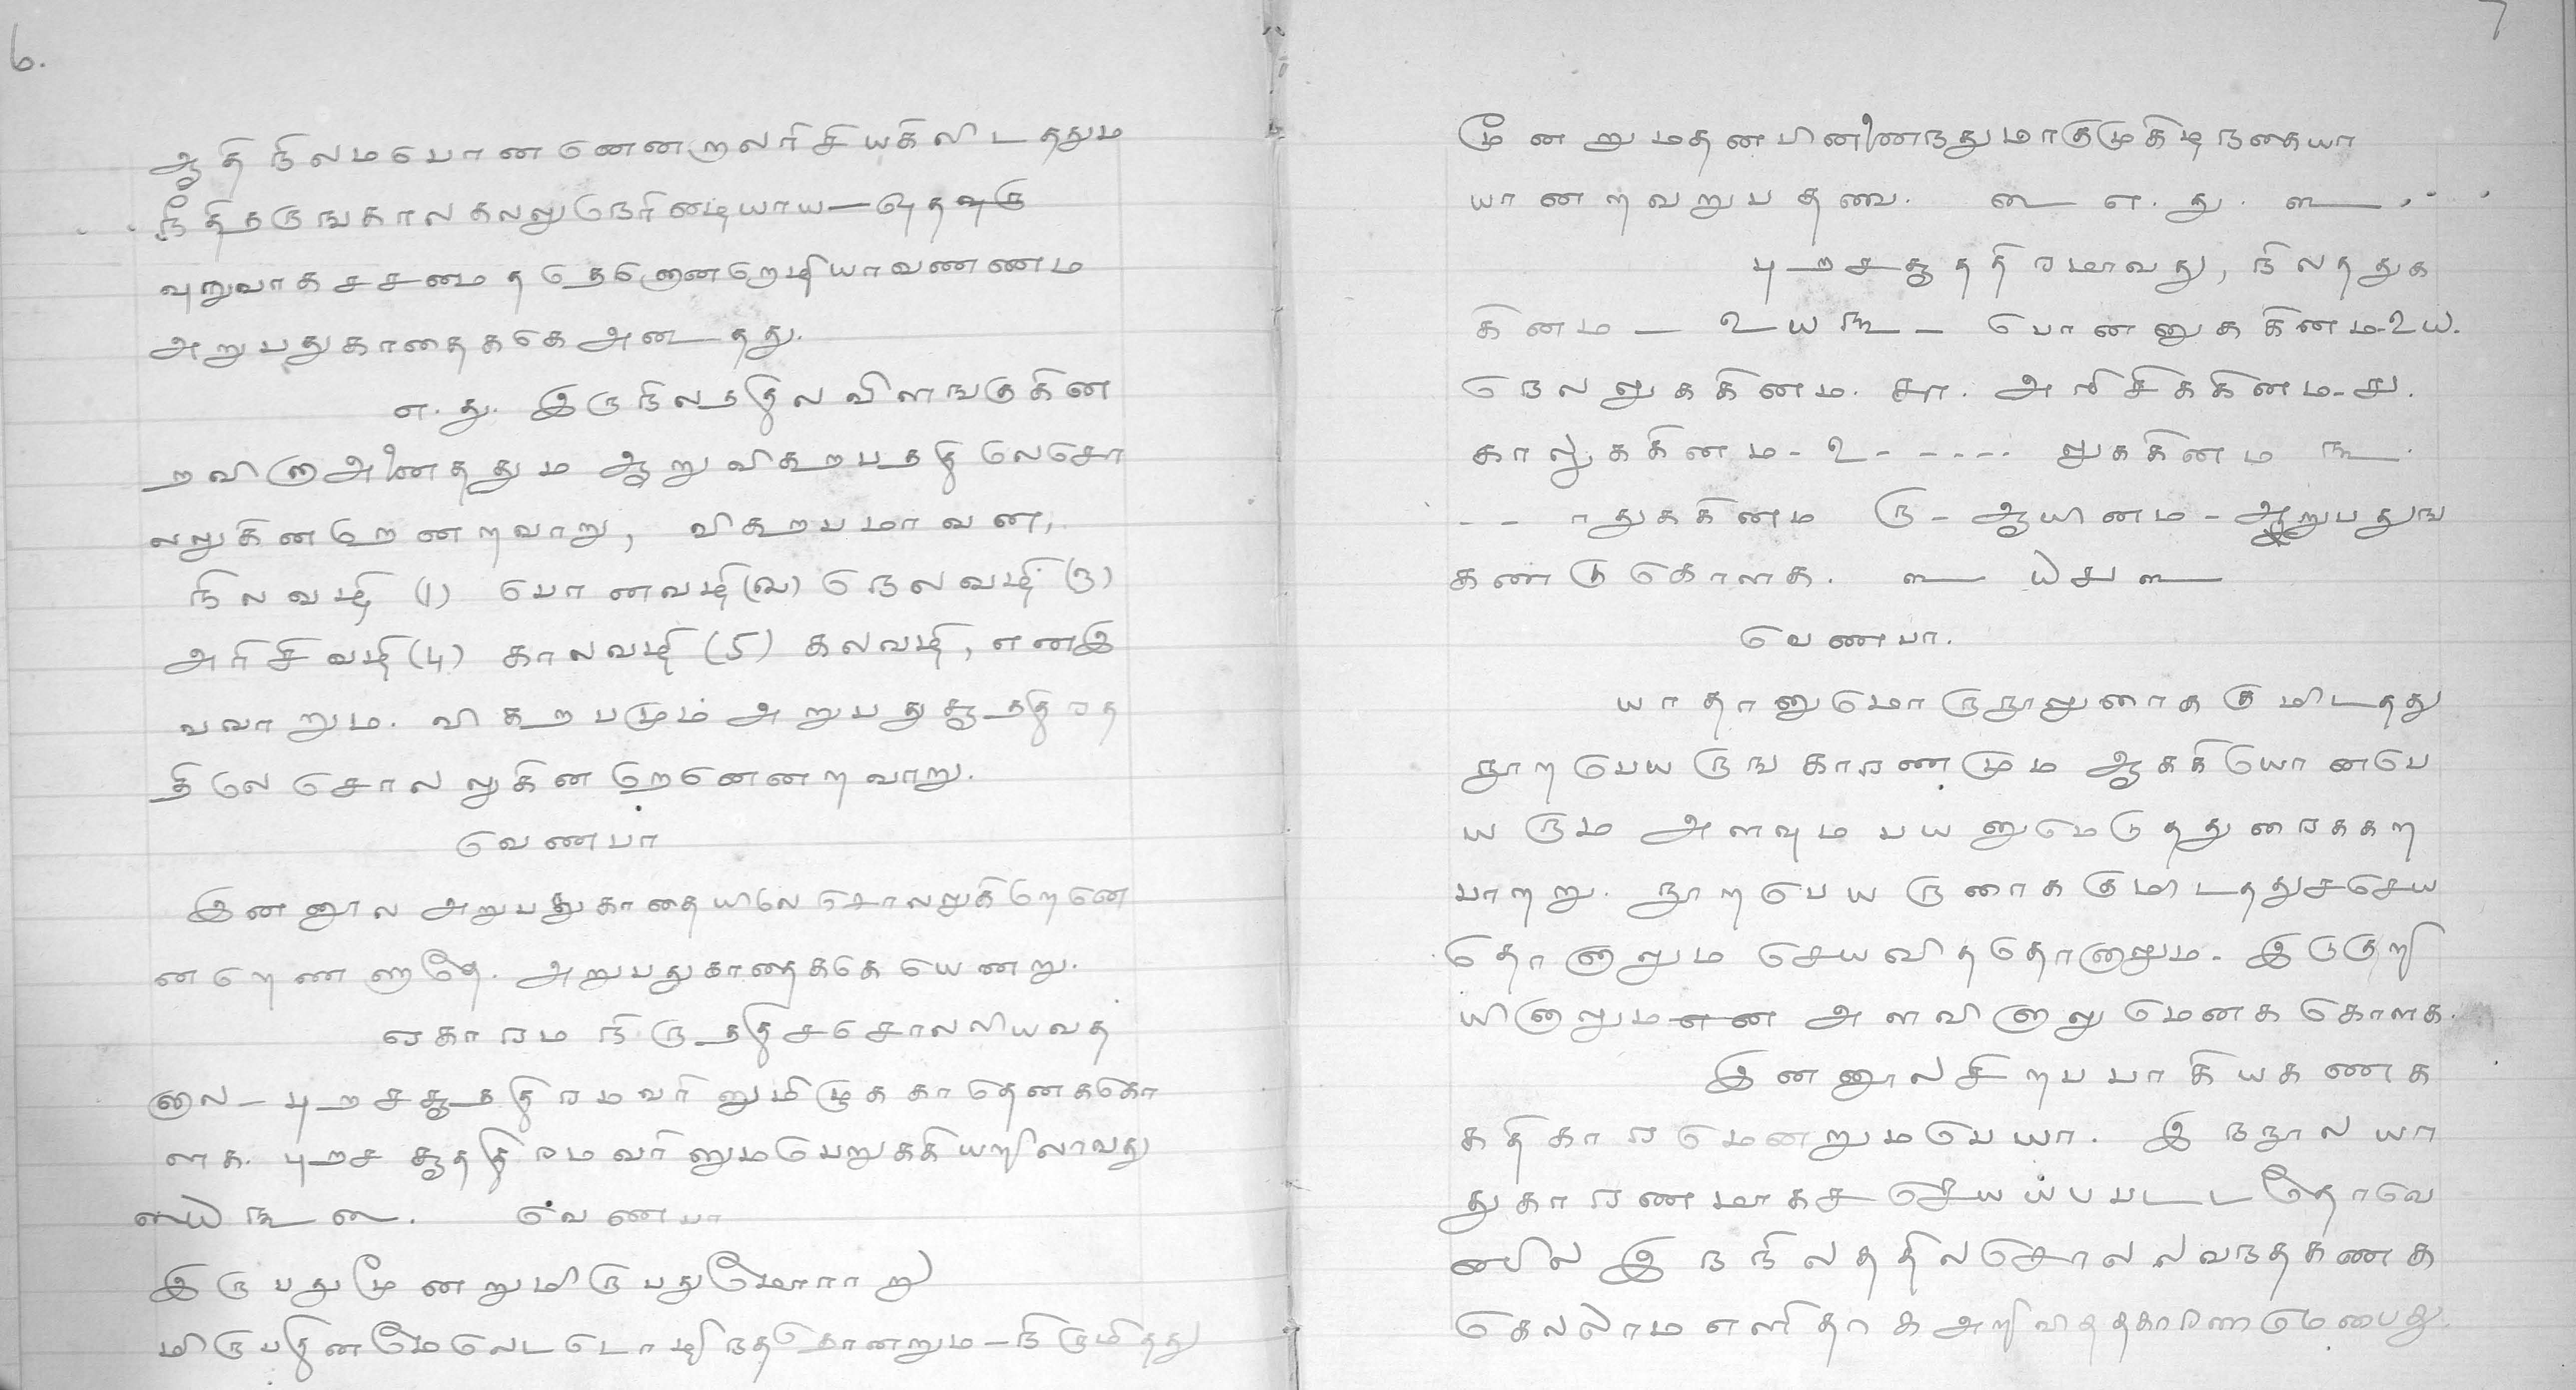 6.
ஆதி நிலமபொனனெனறுலரிசியகலிடததும
நீதிதருஙகாலகலலுநெரினடியாய — வுதவுரு
வுறுவாகசசமைததெனொனறெழியாவணணம
அறுபதுகாதைககே அடைதது.
எ.து. இருநிலததில விளஙகுகின
றவிருஅனைததும ஆறு விகறபததிலெசொ
லலுகினறெனறவாறு, விகறபமாவன,
நிலவழி (1) பொனவழி (2) நெலவழி (3)
அரிசிவழி (4) காலவழி (5) கலவழி, எனஇ
வவாறும. விகறபமும் அறுபதுசூததிரத
திலே சொலலுகினறெனெனறவாறு.
வெணபா
இனனூல அறுபதுகாதையிலே சொலலுகிறெனெ
னறெணணாதே. அறுபதுகாதைககெயெனறு.
ஏகாரம நிருததிசசொலலியவத
னால — புறசசூததிரமவரினுமிழுககாதெனககொ
ளக. புறச சூததிரமவரினுமபெறுககியறிலாவது
வெணபா
இருபதுமூனறுமிருபதுமோராறு
மிருபதினமேலெடடொழிநதகொனறும — நிருமிதது
7
மூனறுமதனபினனைநதுமாகுமுகிடிநகையா
யானறவறுபதணை. எ.து.
புறசசூததிரமாவது, நிலததுக
கினம — ௨௰௩ — பொனனுககினம - ௨௰.
நெலலுககினம. ௬. அரிசிககினம - ௮.
காலுககினம - ௨ - - - - - லுககினம ௩.
- - ாதுககினம ௫ - ஆயினம - ஆறுபதுங
கணடுகொளக. ௰௪
வெணபா.
யாதானுமொருநூலுரைககுமிடதது
நூறபெயருஙகாரணமும ஆககியொனபெ
யரும அளவும பயனுமெடுததுரைககற
பாறறு. நூறபெயருரைககுமிடததுசசெய
தொனாலும செயவிததொனாலும. இடுகுறி
யினாலும அளவினாலுமெனக கொளக.
இனனூலசிறபபாகியகணக
கதிகாரமெனறுமபெயா. இநநூல யா
துகாரணமாகச செயய்பபடடதோவெ
னில இநநிலததிலசொலலவநதகணக
கெலலாமஎளிதாக அறிவிததகாரணமெபைது.